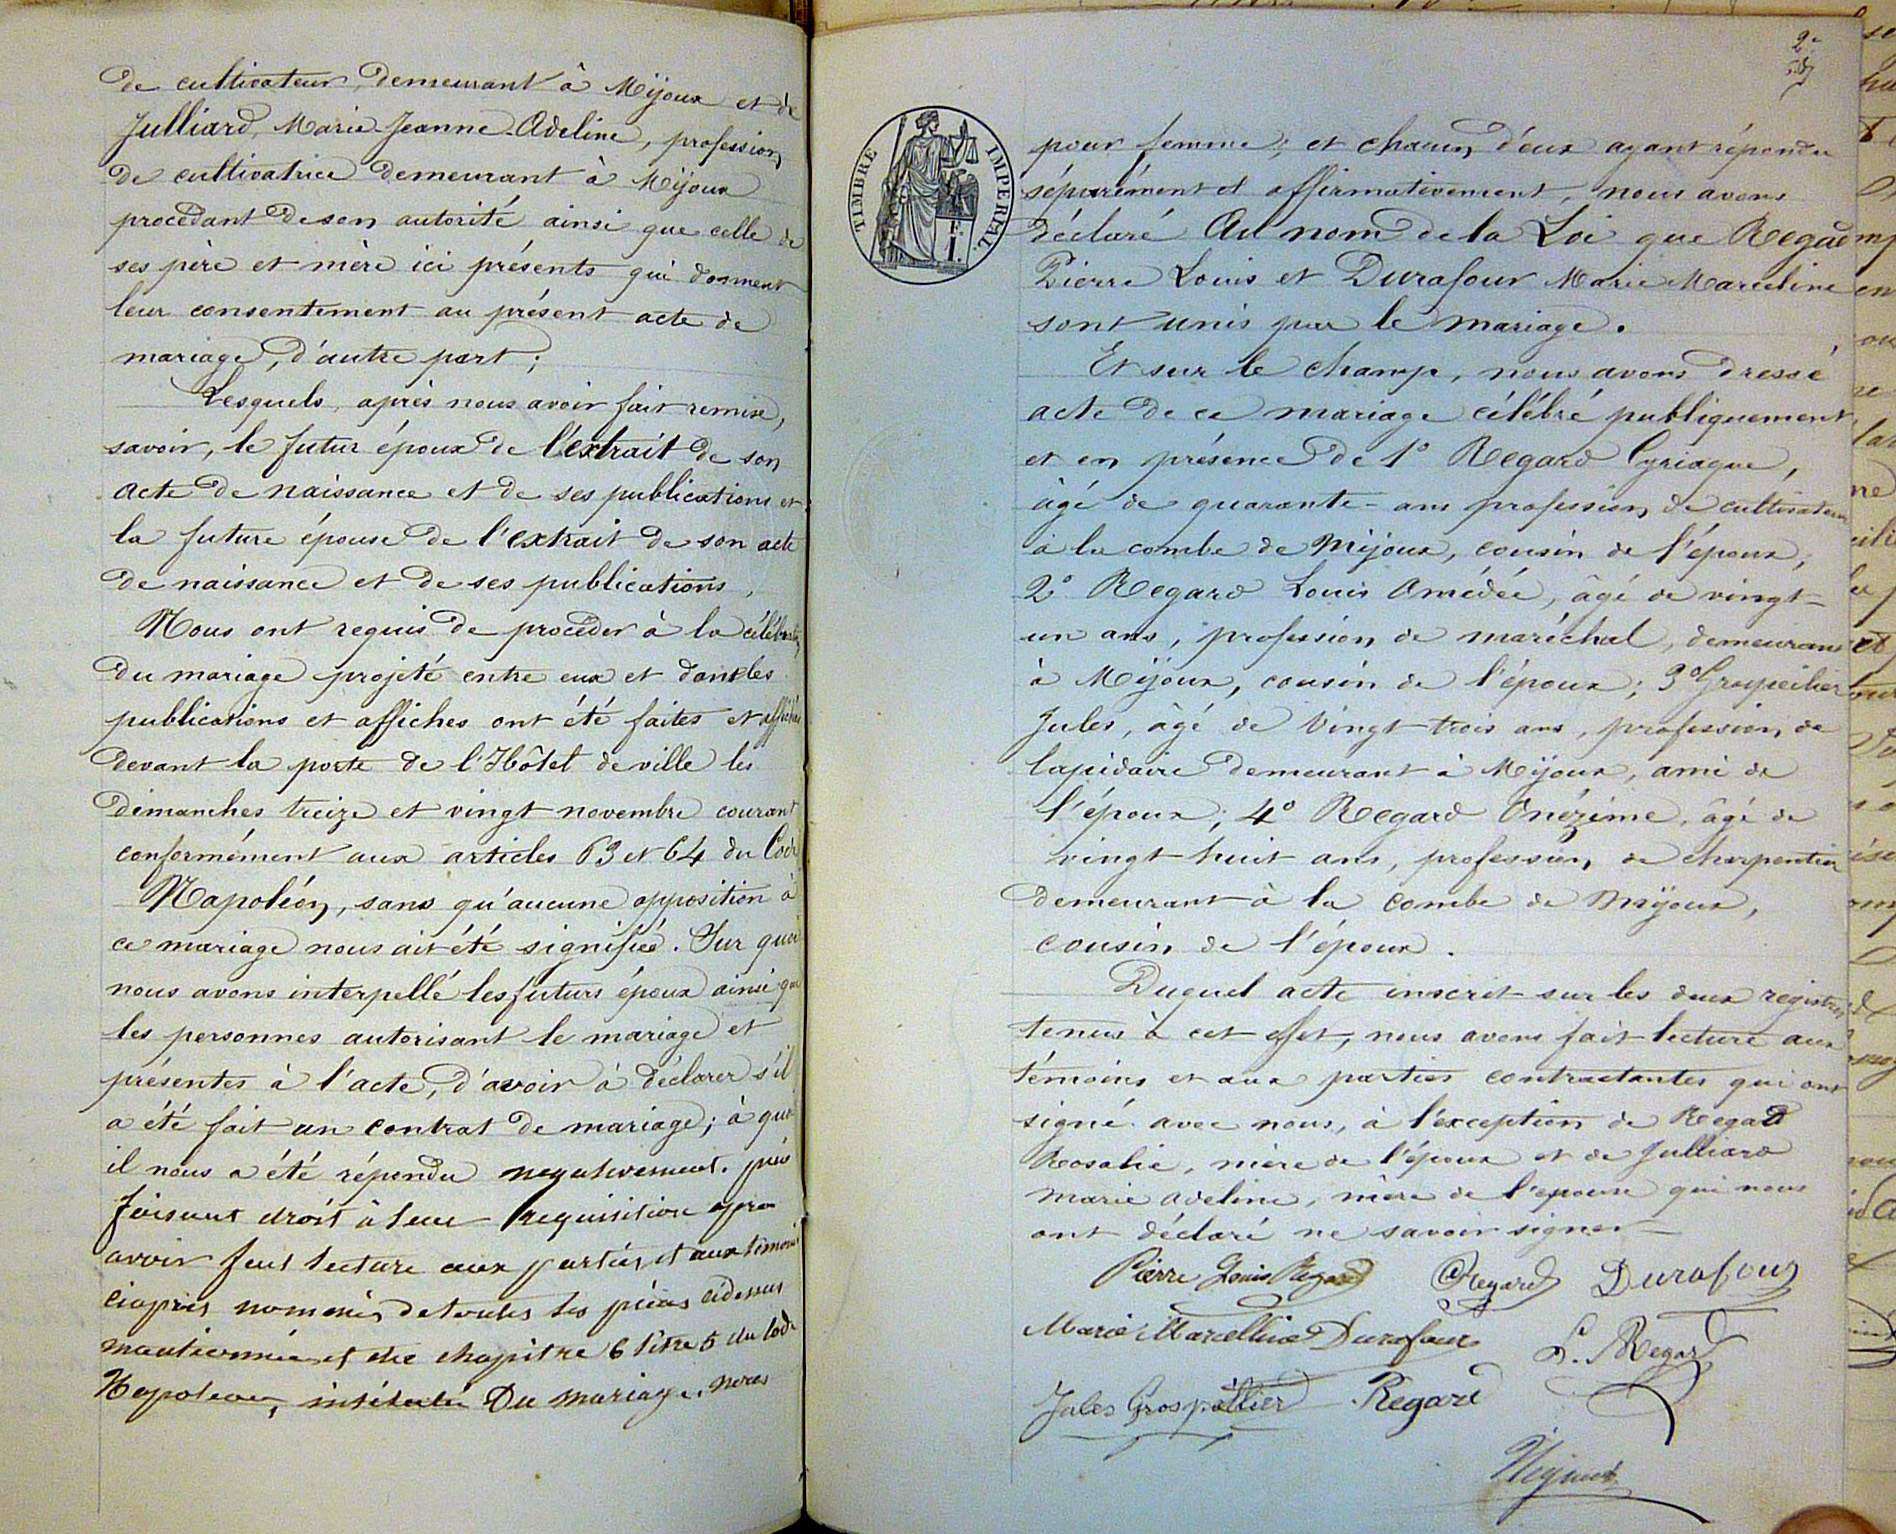 de cultivateur, demeurant à Mijoux et de
Julliard, Marie-Jeanne-Adeline, profession
de cultivatrice demeurant à Mijoux
procédant de son autorité ainsi que celle de
ses père et mère ici présents qui donnent
leur consentement au présent acte de
mariage, d'autre part;
Lesquels, après nous avoir fait remise,
savoir, le futur époux de l'extrait de son
acte de naissance et de ses publications et
la future épouse de l'extrait de son acte
de naissance et de ses publications,
Nous ont requis de procéder à la célébration
du mariage projeté entre eux et dont les
publications et affiches ont été faites et affichées
devant la porte de l'Hôtel de ville les
dimanches treize et vingt novembre courant
conformément aux articles 63 et 64 du Code
Napoléon, sans qu'aucune opposition à
ce mariage nous ait été signifiée. Sur quoi
nous avons interpellé les futurs époux ainsi que
les personnes autorisant le mariage et
présentes à l'acte, d'avoir à déclarer s'il
a été fait un contrat de mariage; à quoi
il nous a été répondu négativement. puis
faisant droit à leur requisition après
avoir fait lecture aux parties et aux témoins
ciaprès nommés de toutes les pièces cidessus
mentionnées et du chapitre 6 titre 5 du code
Napoléon, intitulé Du mariage. nous
2e
TIMBRE IMPERIAL
pour femme; et chacun d'eux ayant répondu
séparément et affirmativement, nous avons
déclaré Au nom de la Loi que Regad
Pierre Louis et Durafour Marie Marceline
sont unis par le mariage.
Et sur le champ, nous avons dressé
acte de ce mariage célébré publiquement
et en présence de 1° Regard Cyriaque,
âgé de quarante-ans profession de cultivateur
à la combe de Mijoux, cousin de l'époux;
2° Regard Louis Amédée, âgé de vingt-
un ans, profession de maréchal, demeurant
à Mijoux, cousin de l'époux; 3° Grospeilier
Jules, âgé de vingt trois ans, profession de
lapidaire demeurant à Mijoux, ami de
l'époux; 4° Regard Onézime, âgé de
vingt-huit ans, profession de charpentier
demeurant à la combe de Mijoux,
cousin de l'époux.
Duquel acte inscrit sur les deux registres
tenus à cet effet, nous avons fait lecture aux
témoins et aux parties contractantes qui ont
signé avec nous, à l'exception de Regad
Rosalie, mère de l'époux et de Julliard
Marie Adeline, mère de l'épouse qui nous
ont déclaré ne savoir signer
Pierre Louis Regard CRegard Durafour
Marie Marcelline Durafour L. Regard
Jules Grospellier Regard